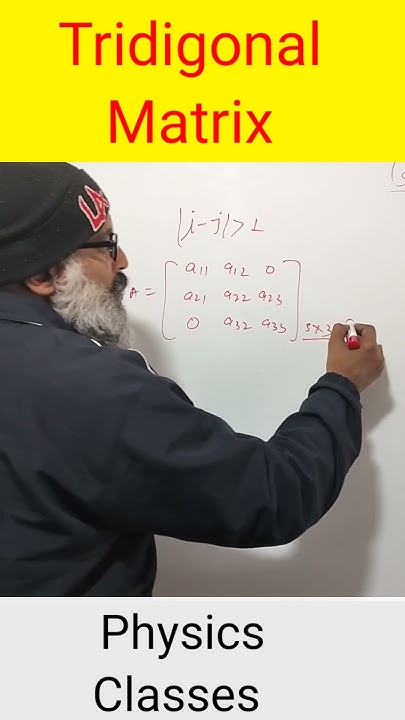 Tridigonal
Matrix
|i-j|>1
A = [ a11 a12 0
a21 a22 a23
0 a32 a33 ] 3×3
LA
Physics
Classes